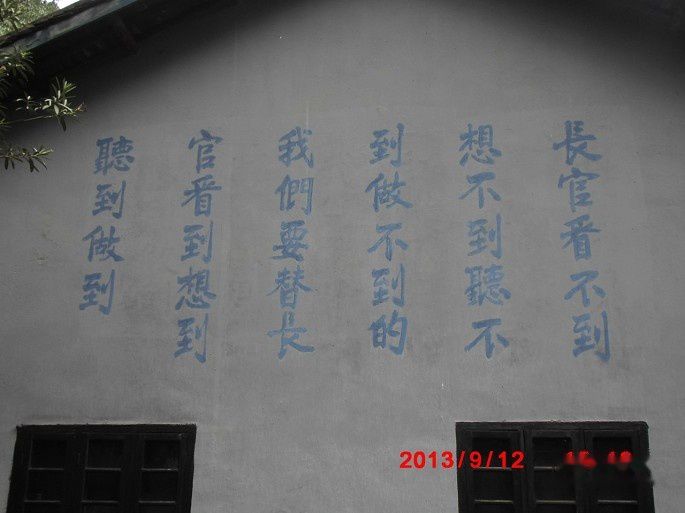 長官看不到
想不到聽不
到做不到的
我們要替長
官看到想到
聽到做到
2013/9/12